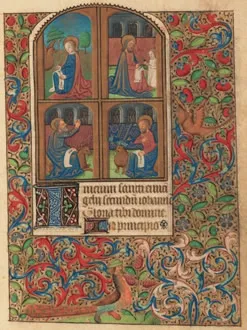 Inicium sancti euuā
gelij secundū iohannē
Gloria tibi domine.
In principio